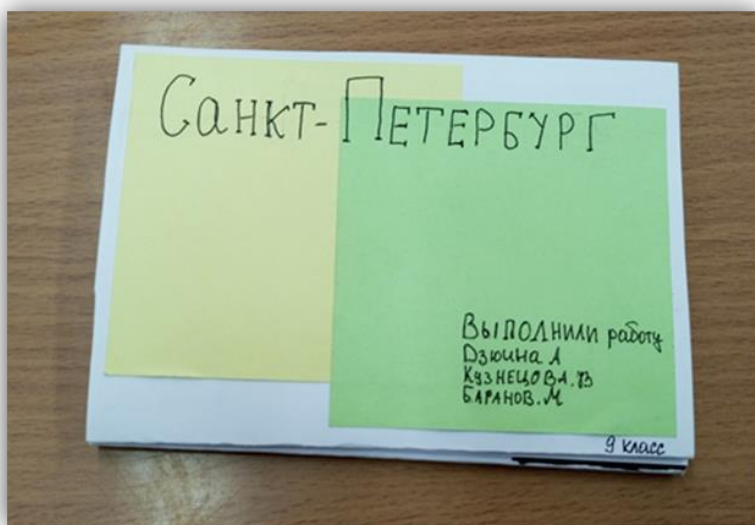 Санкт-Петербург
Выполнили работу
Дзюина А
Кузнецова.В
Баранов.М
9 класс